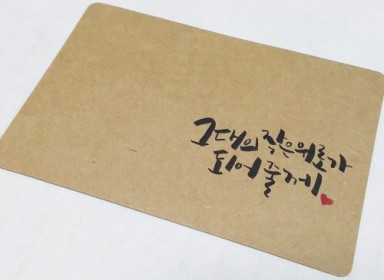 그대의 작은 위로가
되어 줄게